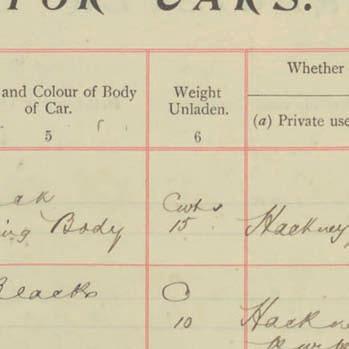 FOR CARS.
and Colour of Body
of Car.
5
Weight
Unladen.
6
Whether
(a) Private use
Body
Cwts
15
Hackney
Blacks
C
10